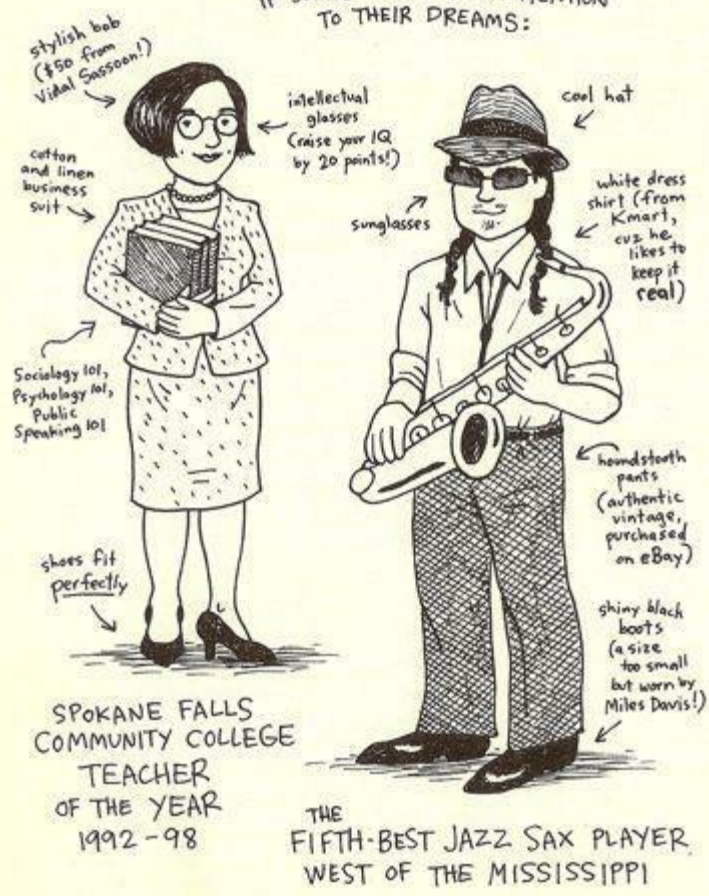 TO THEIR DREAMS:
stylish bob
($50 from
Vidal Sassoon!)
intellectual
glasses
(raise your IQ
by 20 points!)
cotton
and linen
business
suit
Sociology 101,
Psychology 101,
Public
Speaking 101
shoes fit
perfectly
SPOKANE FALLS
COMMUNITY COLLEGE
TEACHER
OF THE YEAR
1992-98
cool hat
sunglasses
white dress
shirt (from
Kmart,
cuz he
likes to
keep it
real)
houndstooth
pants
(authentic
vintage,
purchased
on eBay)
shiny black
boots
(a size
too small
but worn by
Miles Davis!)
THE
FIFTH-BEST JAZZ SAX PLAYER
WEST OF THE MISSISSIPPI